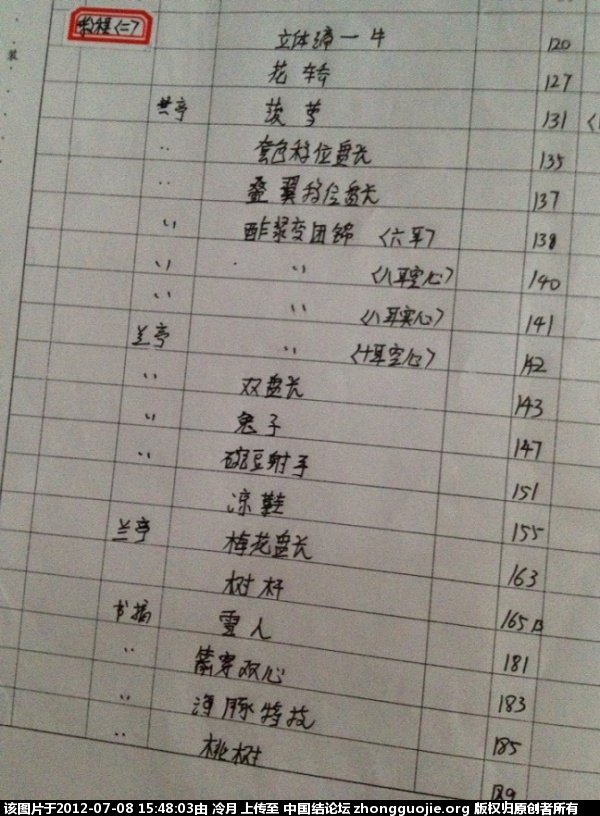 教程<二>
立体绣一牛 120
花轿 127
兰亭 菠萝 131
〃 套色移位盘长 135
〃 叠翼移位盘长 137
〃 酢浆变团锦 <六耳> 138
〃 〃 <八耳空心> 140
〃 〃 <八耳实心> 141
兰亭 〃 <十耳空心> 142
〃 双盘长 143
〃 兔子 147
〃 豌豆射手 151
凉鞋 155
兰亭 梅花盘长 163
树杆 165B
书摘 雪人 181
〃 箭穿双心 183
〃 海豚特技 185
〃 桃树 189
该图片于2012-07-08 15:48:03由 冷月 上传至 中国结论坛 zhongguojie.org 版权归原创者所有